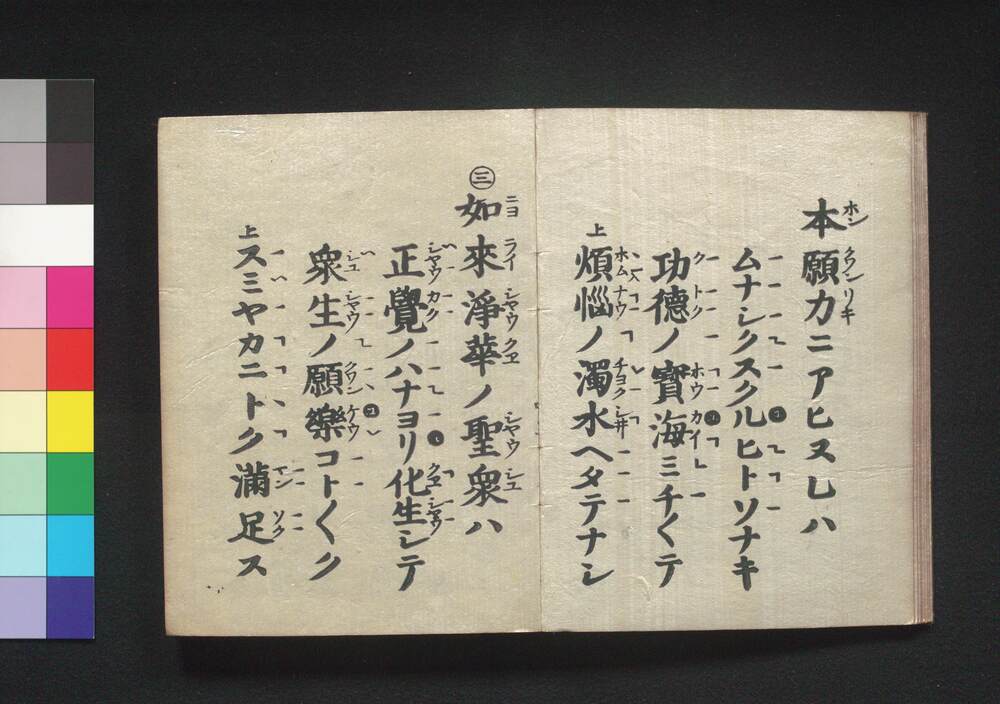 本願力ニアヒヌレハ
ムナシクスクルヒトソナキ
功德ノ寶海ミチ〱テ
上煩惱ノ濁水ヘタテナシ
㊂
如來淨華ノ聖衆ハ
正覺ノハナヨリ化生シテ
衆生ノ願樂コト〱ク
上スミヤカニトク滿足ス